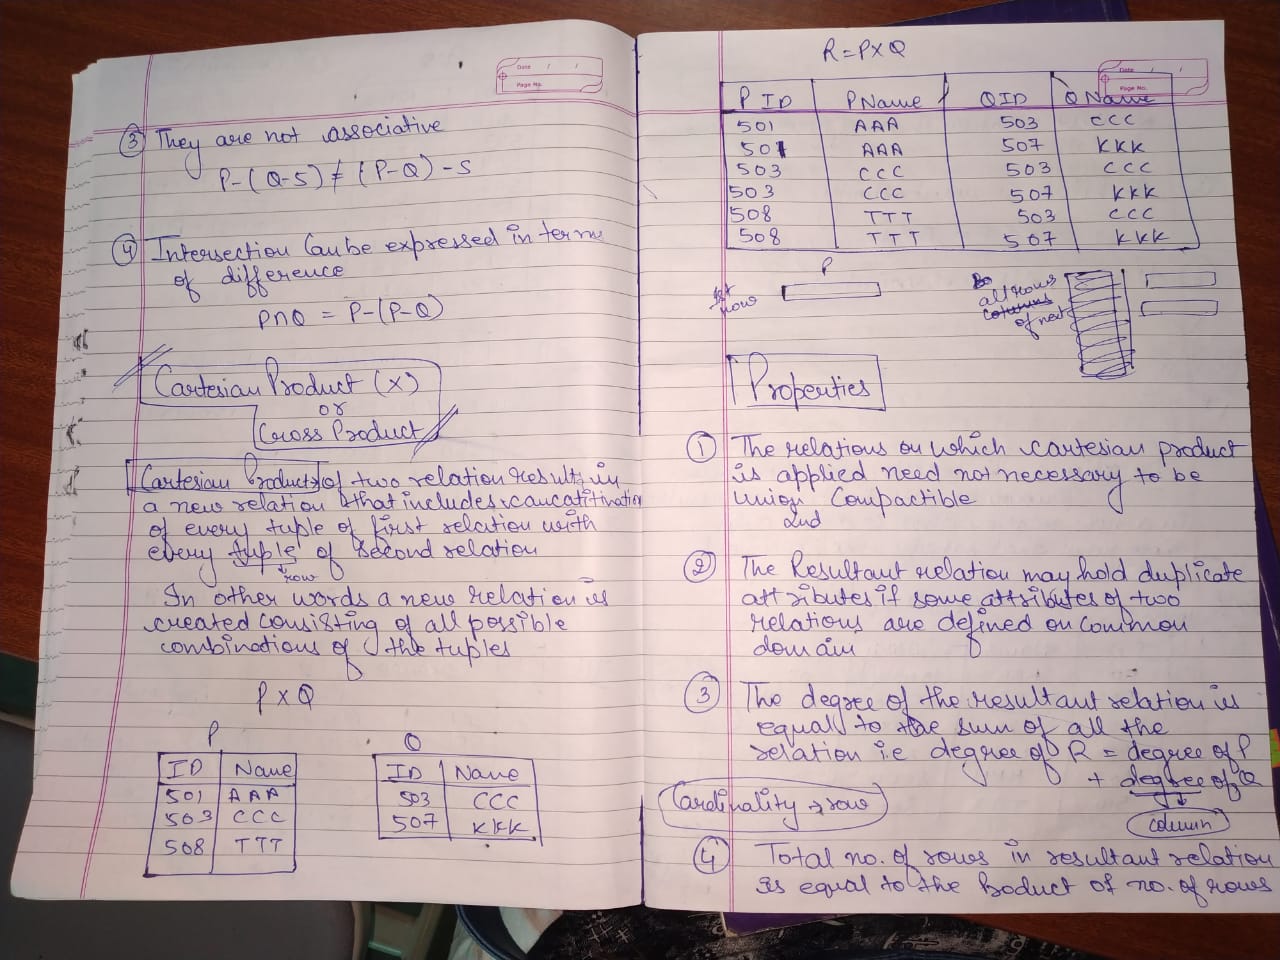 Date / /
Page No.
③ They are not associative
P-(Q-S) ≠ (P-Q)-S
④ Intersection Can be expressed in terms
of difference
P∩Q = P-(P-Q)
Cartesian Product (X)
or
Cross Product
Cartesian Product → of two relation results in
a new relation that includes
of every tuple of first relation with
every tuple of second relation
row
In other words a new relation is
created consisting of all possible
combinations of the tuples
P X Q
P
ID Name
501 AAA
503 CCC
508 TTT
Q
ID Name
503 CCC
507 KKK
Date / /
Page No.
R = P X Q
P ID P Name Q ID Q Name
501 AAA 503 CCC
501 AAA 507 KKK
503 CCC 503 CCC
503 CCC 507 KKK
508 TTT 503 CCC
508 TTT 507 KKK
P
1st
row
all rows
columns
of
Properties
① The relations on which cartesian product
is applied need not necessary to be
union Compactible
2nd
② The Resultant relation may hold duplicate
attributes if some attributes of two
relations are defined on common
domain
③ The degree of the resultant relation is
equal to the sum of all the
relation i.e degree of R = degree of P
+ degree of Q
column
Cardinality → row
④ Total no. of rows in resultant relation
is equal to the Product of no. of rows